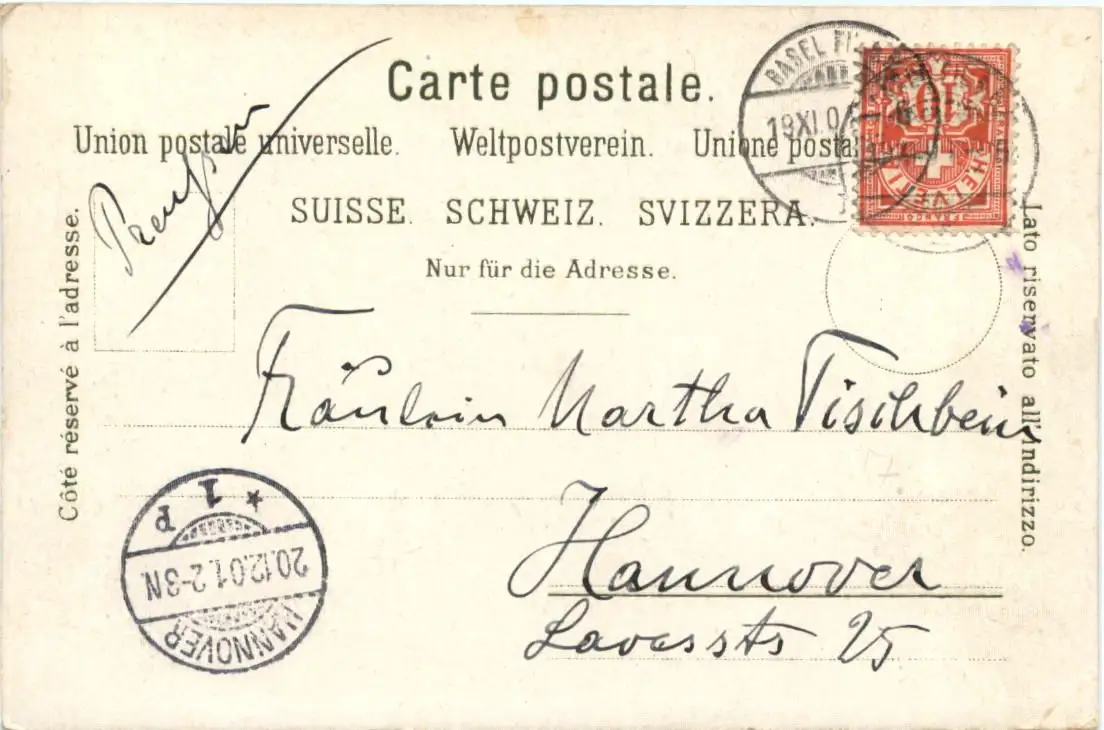 Carte postale.
Union postale universelle. Weltpostverein. Unione postal
SUISSE. SCHWEIZ. SVIZZERA.
Nur für die Adresse.
Côté réservé à l'adresse.
Lato riservato all'Indirizzo.
Preußen
BASEL
19.XI.0
10
HELVETIA
FRANCO
Fräulein Martha Tischbein
Hannover
Lavesstr 25
HANNOVER
20.12.01.2-3N
* 1 P